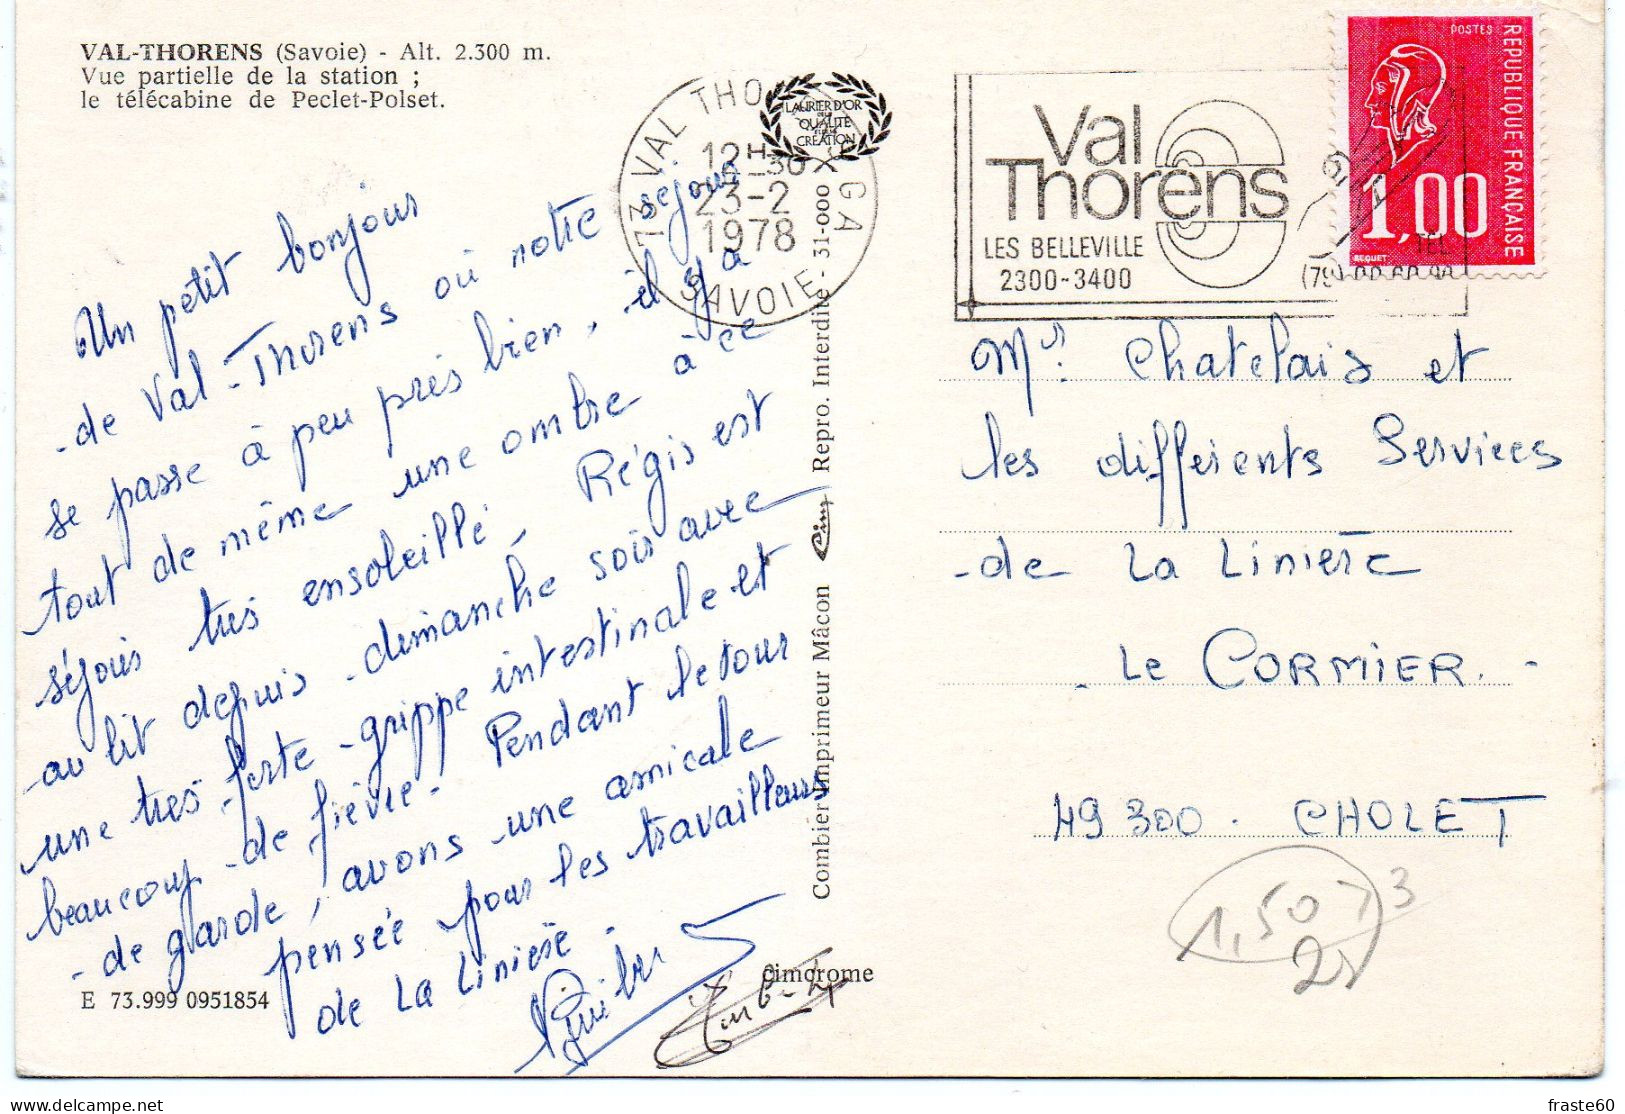 VAL-THORENS (Savoie) - Alt. 2.300 m.
Vue partielle de la station ;
le télécabine de Peclet-Polset.
Un petit bonjour
de Val-Thorens où notre séjour
se passe à peu près bien, il y a
tout de même une ombre à ce
séjour très ensoleillé, Régis est
au lit depuis dimanche soir avec
une très forte grippe intestinale et
beaucoup de fièvre. Pendant le tour
de garde, avons une amicale
pensée pour les travailleurs
de La Linière.
E 73.999 0951854
73 VAL THO
GA
12H-30
23-2
1978
SAVOIE
LAURIER D'OR
DE LA
QUALITÉ
CRÉATION
Combier Imprimeur Mâcon Cim Repro. Interdite - 31-000
cimcrome
Val
Thorens
LES BELLEVILLE
2300-3400
TEL
(79)
POSTES
REPUBLIQUE FRANÇAISE
1,00
BEQUET
Mrs. Chatelais et
les différents Services
de La Linière
Le CORMIER.
49300. CHOLET
1,50
73
fraste60